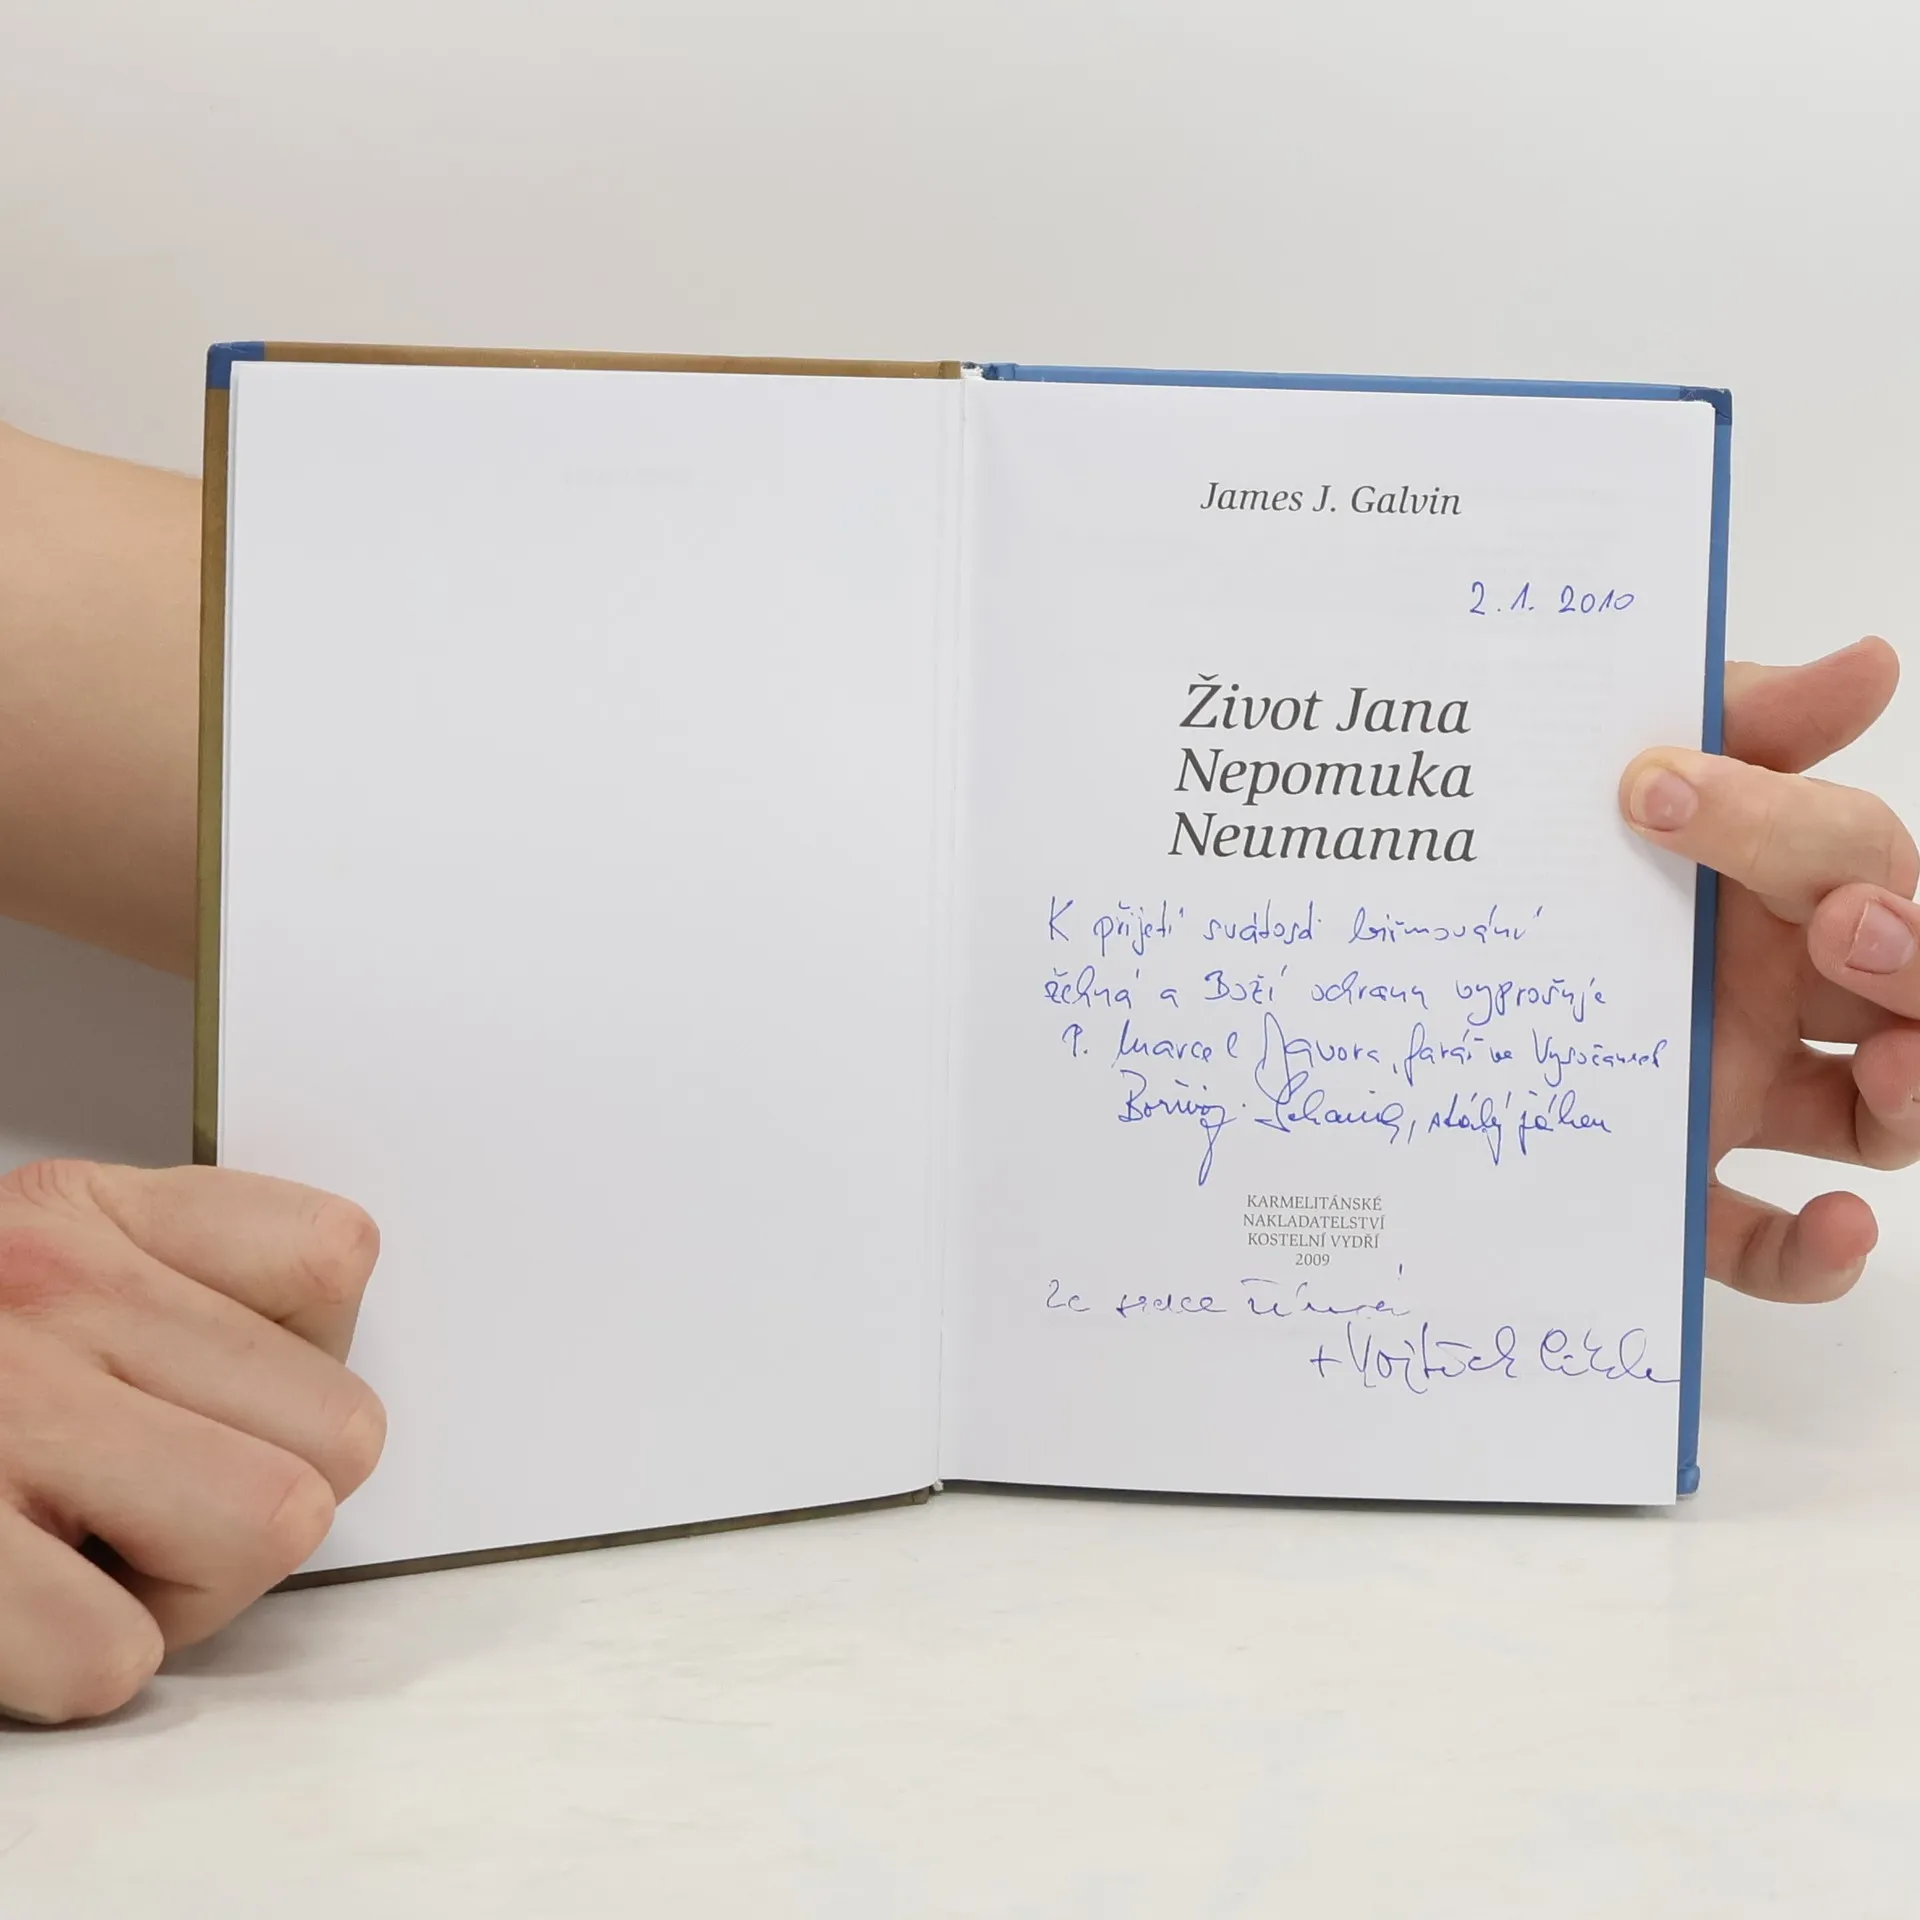 James J. Galvin
2.1. 2010
Život Jana
Nepomuka
Neumanna
K přijetí svátosti biřmování
žehná a Boží ochranu vyprošuje
P. Marcel Javora, farář ve Vysočanech
Bořivoj stálý jáhen
KARMELITÁNSKÉ
NAKLADATELSTVÍ
KOSTELNÍ VYDŘÍ
2009
Ze srdce žehná
+ Vojtěch Cikrle